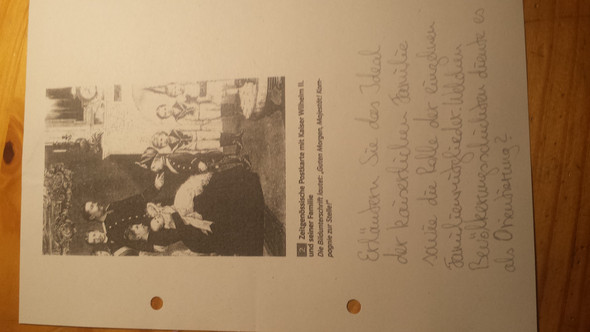 2 Zeitgenössische Postkarte mit Kaiser Wilhelm II.
und seiner Familie
Die Bildunterschrift lautet: „Guten Morgen, Majestät! Kom-
pagnie zur Stelle!“
Erläutern Sie das Ideal
der kaiserlichen Familie
sowie die Rolle der einzelnen
Familienmitglieder. Welchen
Bevölkerungsschichten diente es
als Orientierung?